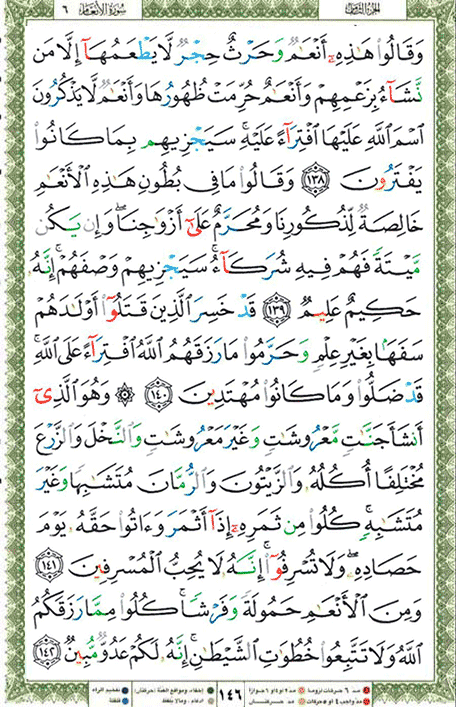 الجزء الثامن ٦ سورة الأنعام
وَقَالُوا۟ هَـٰذِهِۦٓ أَنْعَـٰمٌ وَحَرْثٌ حِجْرٌ لَّا يَطْعَمُهَآ إِلَّا مَن
نَّشَآءُ بِزَعْمِهِمْ وَأَنْعَـٰمٌ حُرِّمَتْ ظُهُورُهَا وَأَنْعَـٰمٌ لَّا يَذْكُرُونَ
ٱسْمَ ٱللَّهِ عَلَيْهَا ٱفْتِرَآءً عَلَيْهِ ۚ سَيَجْزِيهِم بِمَا كَانُوا۟
يَفْتَرُونَ ١٣٨ وَقَالُوا۟ مَا فِى بُطُونِ هَـٰذِهِ ٱلْأَنْعَـٰمِ
خَالِصَةٌ لِّذُكُورِنَا وَمُحَرَّمٌ عَلَىٰٓ أَزْوَٰجِنَا ۖ وَإِن يَكُن
مَّيْتَةً فَهُمْ فِيهِ شُرَكَآءُ ۚ سَيَجْزِيهِمْ وَصْفَهُمْ ۚ إِنَّهُۥ
حَكِيمٌ عَلِيمٌ ١٣٩ قَدْ خَسِرَ ٱلَّذِينَ قَتَلُوٓا۟ أَوْلَـٰدَهُمْ
سَفَهًۢا بِغَيْرِ عِلْمٍ وَحَرَّمُوا۟ مَا رَزَقَهُمُ ٱللَّهُ ٱفْتِرَآءً عَلَى ٱللَّهِ ۚ
قَدْ ضَلُّوا۟ وَمَا كَانُوا۟ مُهْتَدِينَ ١٤٠ ۞ وَهُوَ ٱلَّذِىٓ
أَنشَأَ جَنَّـٰتٍ مَّعْرُوشَـٰتٍ وَغَيْرَ مَعْرُوشَـٰتٍ وَٱلنَّخْلَ وَٱلزَّرْعَ
مُخْتَلِفًا أُكُلُهُۥ وَٱلزَّيْتُونَ وَٱلرُّمَّانَ مُتَشَـٰبِهًا وَغَيْرَ
مُتَشَـٰبِهٍ ۚ كُلُوا۟ مِن ثَمَرِهِۦٓ إِذَآ أَثْمَرَ وَءَاتُوا۟ حَقَّهُۥ يَوْمَ
حَصَادِهِۦ ۖ وَلَا تُسْرِفُوٓا۟ ۚ إِنَّهُۥ لَا يُحِبُّ ٱلْمُسْرِفِينَ ١٤١
وَمِنَ ٱلْأَنْعَـٰمِ حَمُولَةً وَفَرْشًا ۚ كُلُوا۟ مِمَّا رَزَقَكُمُ
ٱللَّهُ وَلَا تَتَّبِعُوا۟ خُطُوَٰتِ ٱلشَّيْطَـٰنِ ۚ إِنَّهُۥ لَكُمْ عَدُوٌّ مُّبِينٌ ١٤٢
١٤٦